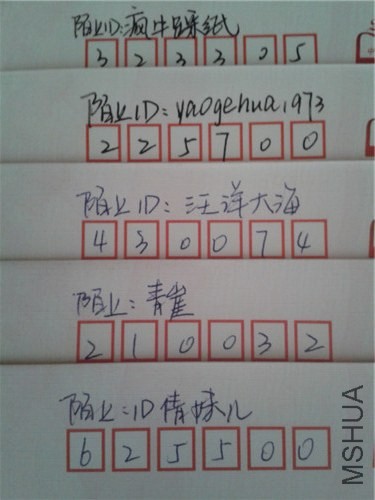 陌上ID:疯牛踩纸
323305
陌上ID:yaogehua1973
225700
陌上ID:汪洋大海
430074
陌上:青雀
210032
陌上:ID倩妹儿
625500
MSHUA